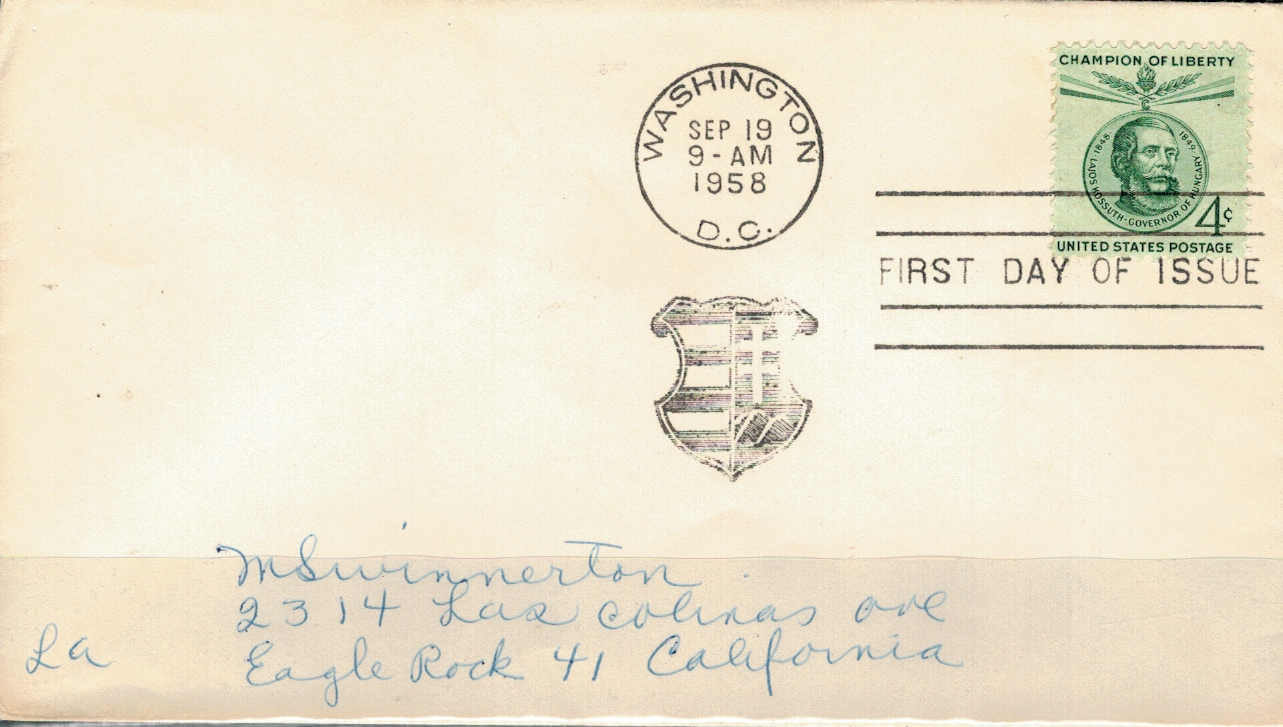 CHAMPION OF LIBERTY
LAJOS KOSSUTH-GOVERNOR OF HUNGARY
·1848· 1849·
4¢
UNITED STATES POSTAGE
WASHINGTON
SEP 19
9-AM
1958
D.C.
FIRST DAY OF ISSUE
M Swinnerton
2314 Las colinas ave
Eagle Rock 41 California
La